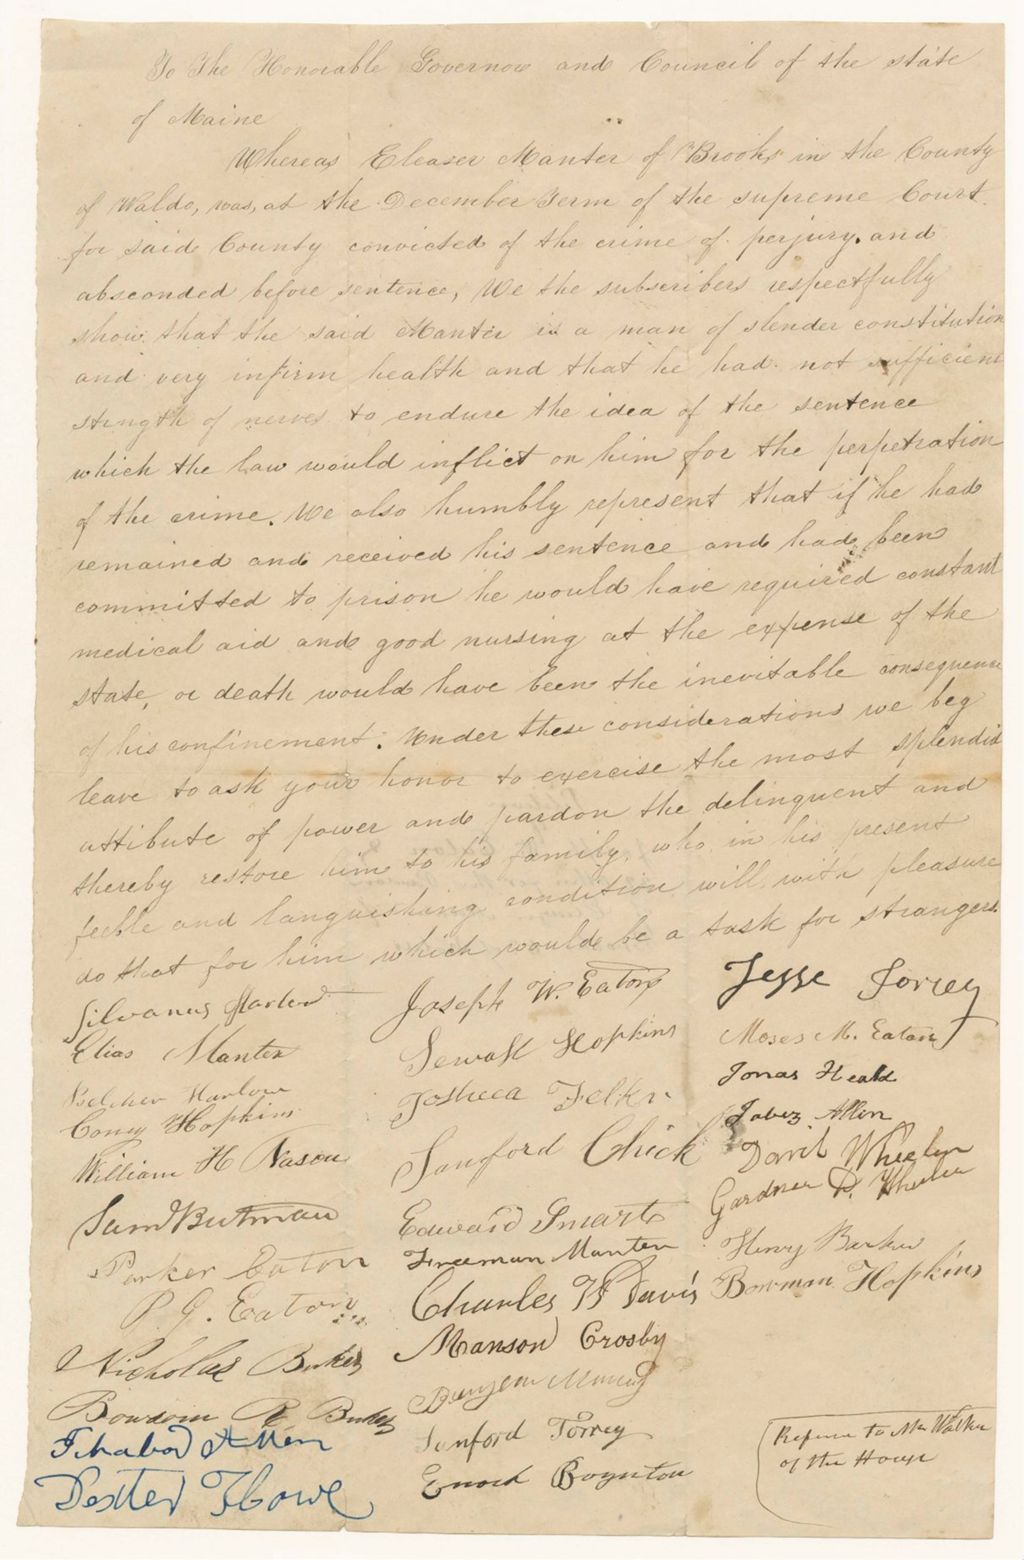 To The Honorable Governor and Council of the state
of Maine
Whereas Eleaser Manter of Brooks in the County
of Waldo, was, at the December Term of the supreme Court
for said County convicted of the crime of perjury, and
absconded before sentence, We the subscribers respectfully
show that the said Manter is a man of slender constitution
and very infirm health and that he had not sufficient
strength of nerves to endure the idea of the sentence
which the law would inflict on him for the perpetration
of the crime. We also humbly represent that if he had
remained and received his sentence and had been
committed to prison he would have required constant
medical aid and good nursing at the expense of the
state, or death would have been the inevitable consequence
of his confinement. Under these considerations we beg
leave to ask your honor to exercise the most splendid
attibute of power and pardon the delinquent and
thereby restore him to his family, who in his present
feeble and languishing condition will with pleasure
do that for him which would be a task for strangers.
Silvanus Harlow
Elias Manter
Belcher Harlow
Coney Hopkins
William H Nason
Saml Butman
Parker Eaton
P. G. Eaton
Nicholas
Bowdoin
Ichabod Allen
Dexter Howe
Joseph W. Eaton
Sewall Hopkins
Joshua Felker
Sanford Chick
Edward Smart
Freeman Manter
Charles W Davis
Manson Crosby
Sanford Torrey
Enoch Boynton
Jesse Torrey
Moses M. Eaton
Jonas Heald
Jabez Allen
David Wheeler
Gardner D. Wheeler
Henry Barker
Bowman Hopkins
Refer to Mr Walker
of the House